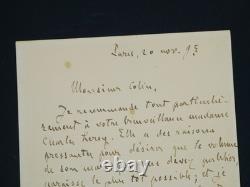 Paris, 20 nov. 95
Monsieur Colin,
Je recommande tout particuliè-
rement à votre bienveillance madame
Charles Leroy. Elle a des raisons
pressantes pour désirer que le volume
de son mari
paraisse le plus tôt possible; et je